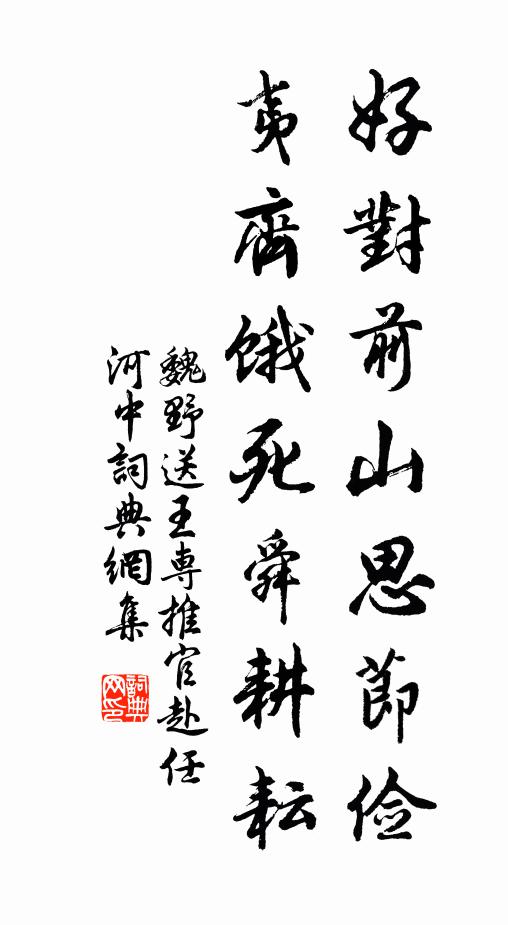 好對前山思節儉
夷齊餓死舜耕耘
魏野送王専推官赴任
河中詞典網集
詞典
网印